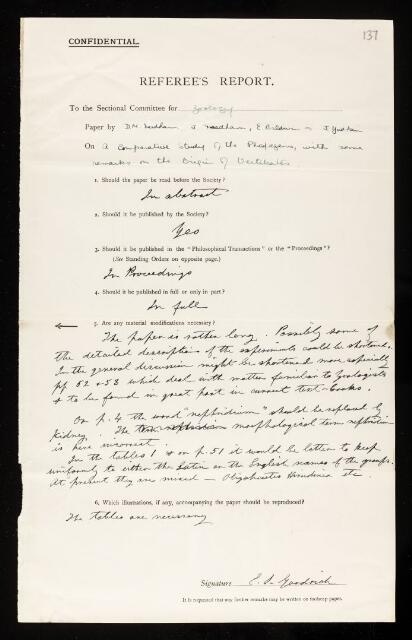 137
CONFIDENTIAL.
REFEREE'S REPORT.
To the Sectional Committee for Zoology
Paper by D.M. Needham, J Needham, E. Baldwin & J Yudkin
On A comparative study of the Phosphagens, with some
remarks on the Origin of Vertebrates
1. Should the paper be read before the Society?
In abstract
2. Should it be published by the Society?
Yes
3. Should it be published in the "Philosophical Transactions" or the "Proceedings"?
(See Standing Orders on opposite page.)
In Proceedings
4. Should it be published in full or only in part?
In full
5. Are any material modifications necessary?
The paper is rather long. Possibly some of
the detailed descriptions of the experiments could be shortened.
In the general discussion might be shortened more especially
pp 52 & 53 which deal with matters familiar to Zoologists
& to be found in great part in current text-books.
On p. 4 the word "nephridium" should be replaced by
kidney. The morphological term nephridium
is here incorrect.
In the tables 1 & on p. 51 it would be better to keep
uniformly to either the Latin or the English names of the groups.
At present they are mixed — Oligochaetes Hirudinea etc.
6. Which illustrations, if any, accompanying the paper should be reproduced?
The tables are necessary
Signature E. S. Goodrich
It is requested that any further remarks may be written on foolscap paper.